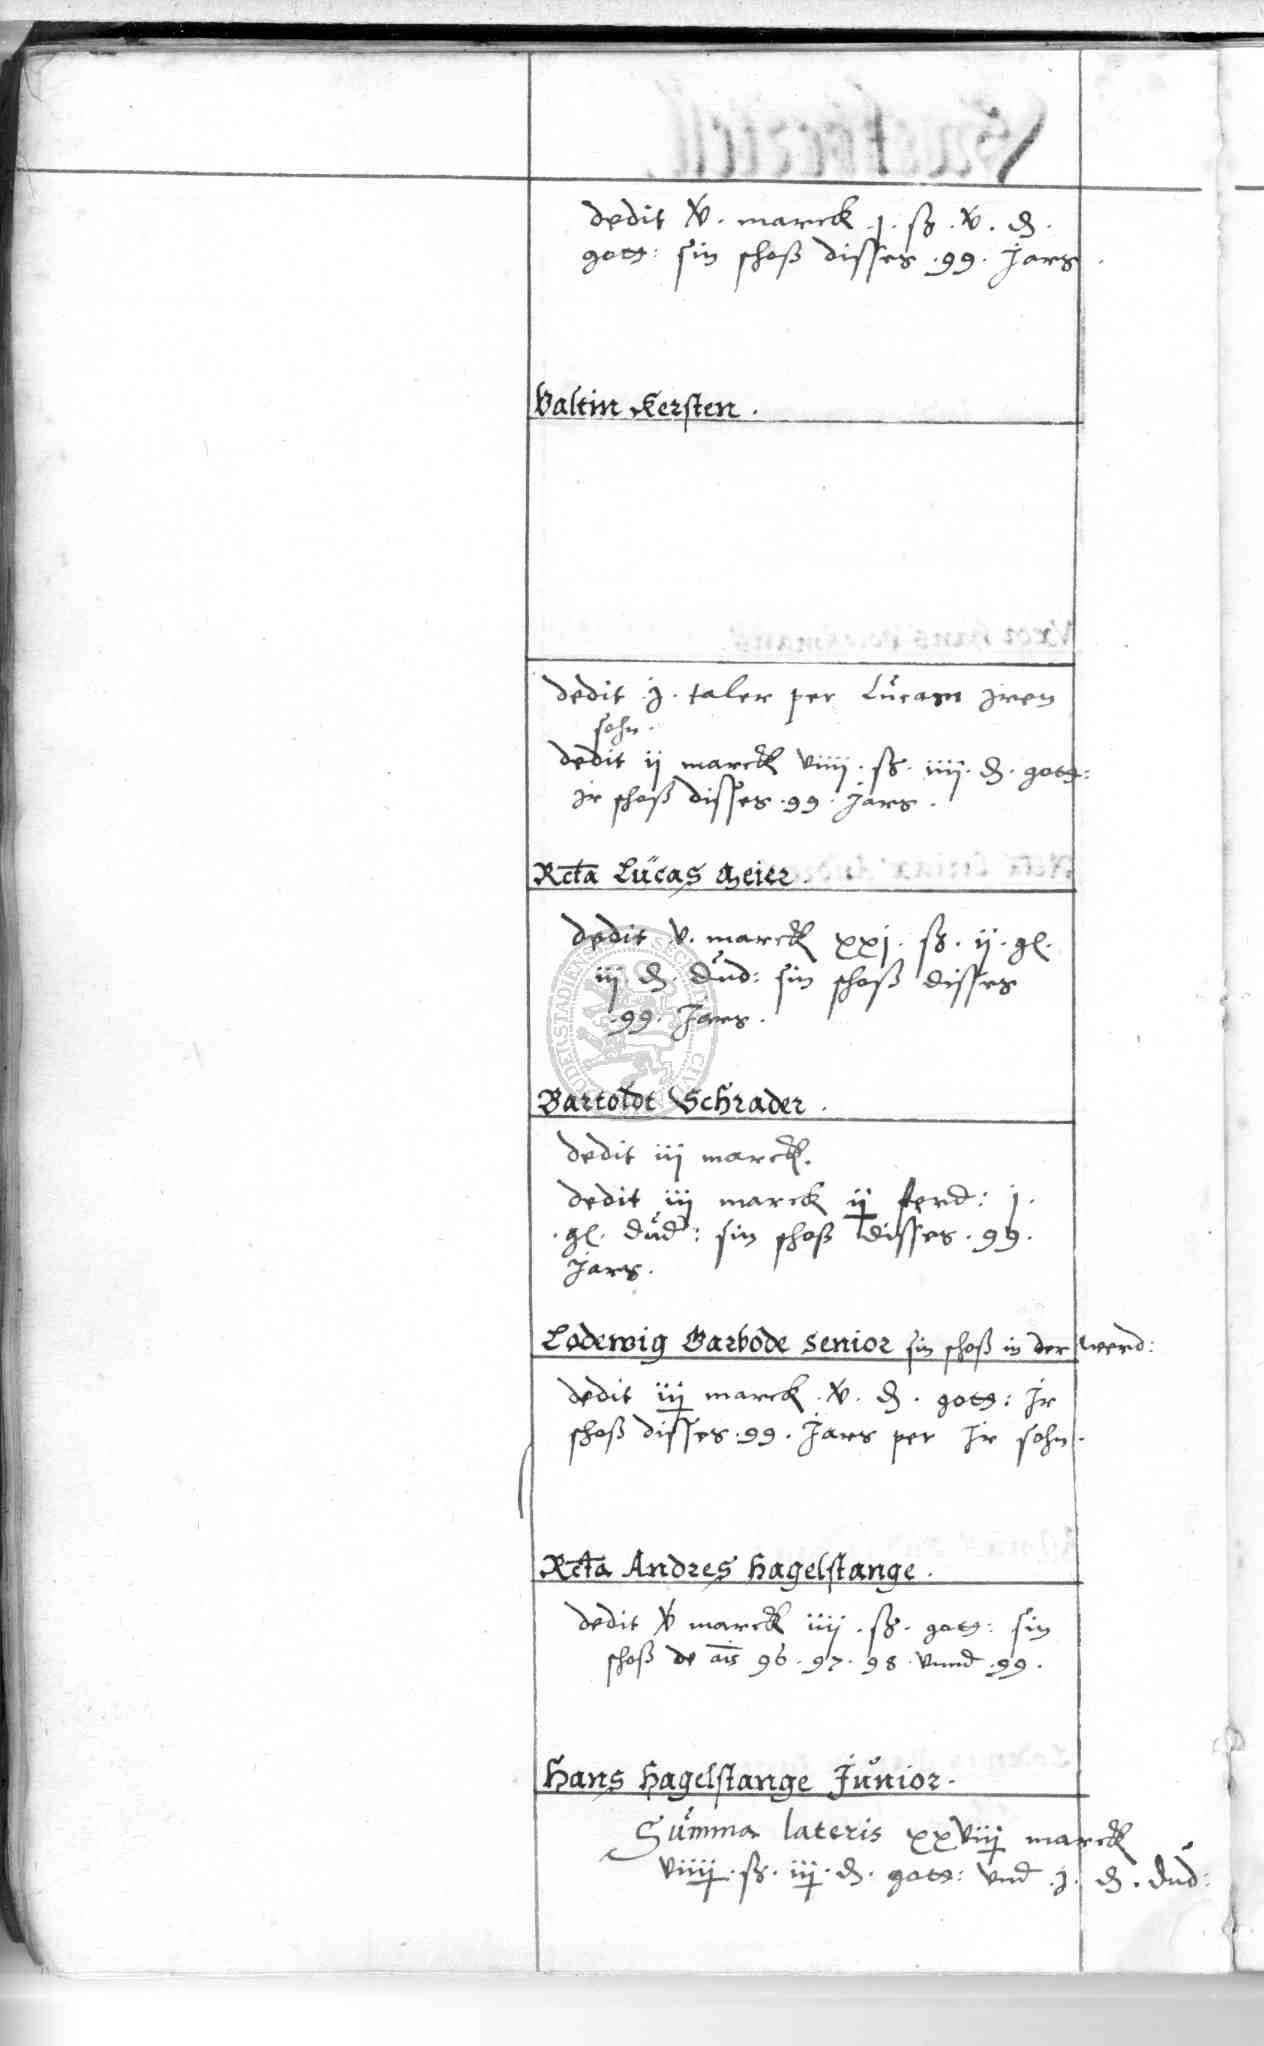 dedit v. marck .j. ß. v. d.
gott: sin schoß disses .99. Jars.
Valtin Kersten.
dedit .j. taler per Lucam jren
sohn.
dedit ij marck viiij. ß. iiij. d. gott:
jr schoß disses .99. Jars.
Rcta Lucas Meier.
dedit v. marck xxj. ß. ij. gl.
iij d. dud: sin schoß disses
.99. Jars.
Bartoldt Schrader.
dedit iij marck.
dedit iij marck ij ferd: j.
.gl. dud: sin schoß disses .99.
Jars.
Lodewig Barbode senior sin schoß in der werd:
dedit iij marck .v. d. gott: Jr
schoß disses .99. Jars per Jr sohn.
Rcta Andres Hagelstange.
dedit v marck iiij. ß. gott: sin
schoß de ais 96. 97. 98. vnnd .99.
Hans Hagelstange Junior.
Summa lateris xxviij marck
viiij. ß. iij. d. gott: vnd .j. d. dud: